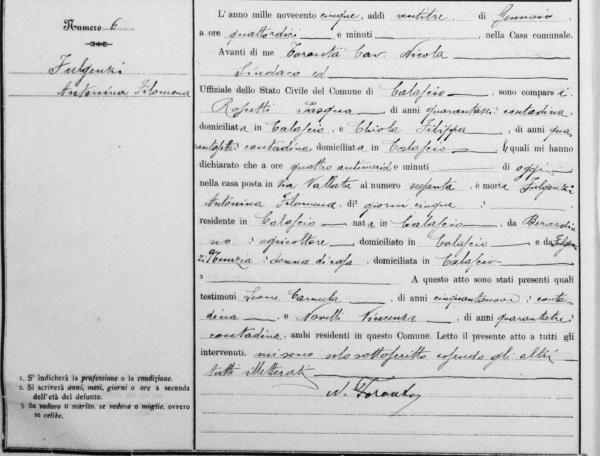 Numero 6
Fulgenzi
Antonina Filomena
L'anno mille novecento cinque, addì ventitre di Gennaio
a ore quattordici e minuti , nella Casa comunale.
Avanti di me Taranta Cav. Nicola
Sindaco ed
Uffiziale dello Stato Civile del Comune di Calascio, sono comparsi
Pasqua, di anni contadina
domiciliata in Calascio, e Chiola Filippa, di anni qua
contadina domiciliata in Calascio, i quali mi hanno
dichiarato che a ore quattro antimerid e minuti di oggi
nella casa posta in Via Vallata al numero sessanta, è morta Fulgenzi
Antonina Filomena, di giorni cinque,
residente in Calascio nata in Calascio, da Berardi
no, agricoltore domiciliato in Calascio e da
Venezia, donna di casa, domiciliata in Calascio
A questo atto sono stati presenti quali
testimoni Leone Carmela, di anni cinquantanove, conta
dina, e Novelli Vincenza, di anni quarantatre,
contadina, ambi residenti in questo Comune. Letto il presente atto a tutti gli
intervenuti, mi sono sottoscritto essendo gli altri
tutti illetterati
N. Taranta
1. S' indicherà la professione o la condizione.
2. Si scriverà anni, mesi, giorni o ore a seconda
dell'età del defunto.
3. Se vedovo o marito, se vedova o moglie, ovvero
se celibe.